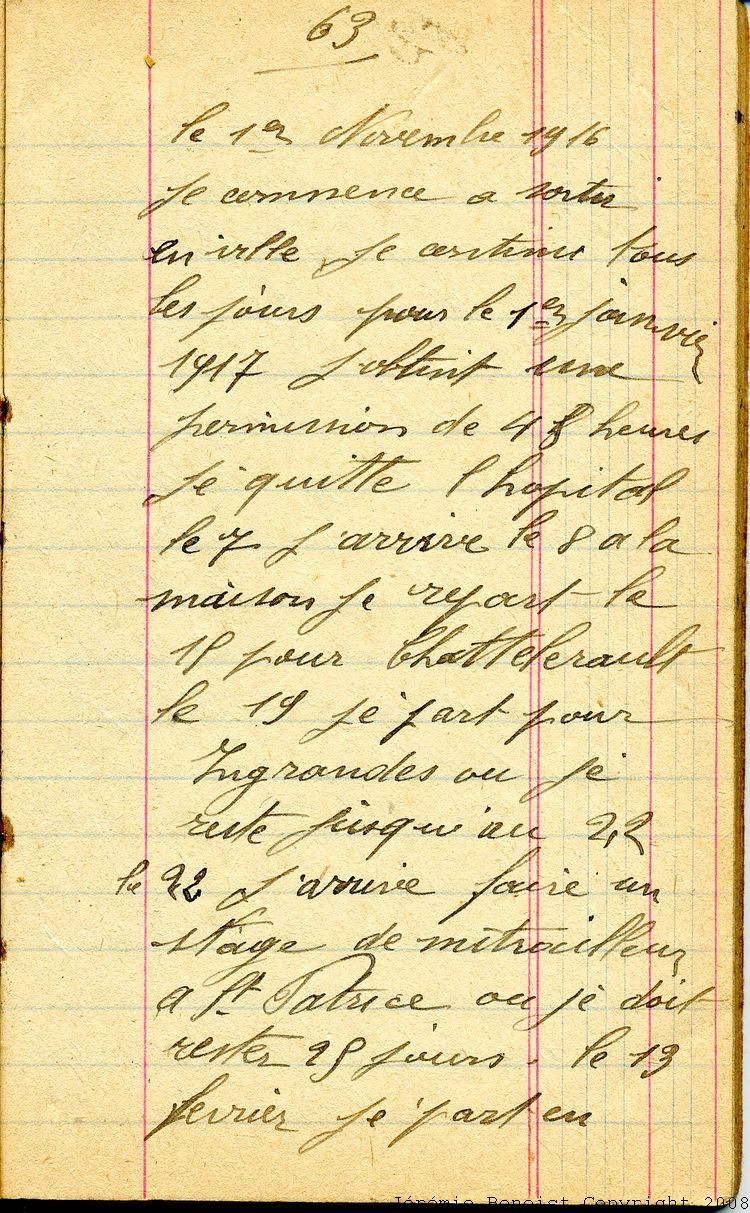 63
le 1er Novembre 1916
je commence a sortir
en ville je continu tous
les jours pour le 1er janvier
1917 j'obtint une
permission de 48 heures
je quitte l hopital
le 7 j'arrive le 8 a la
maison je repart le
18 pour Chattelerault
le 19 je part pour
Ingrandes ou je
reste jusqu'au 22
le 22 j'arrive faire un
stage de mitrailleur
a St Patrice ou je doit
rester 25 jours. le 13
fevrier je part en
Jérémie Benoist Copyright 2008